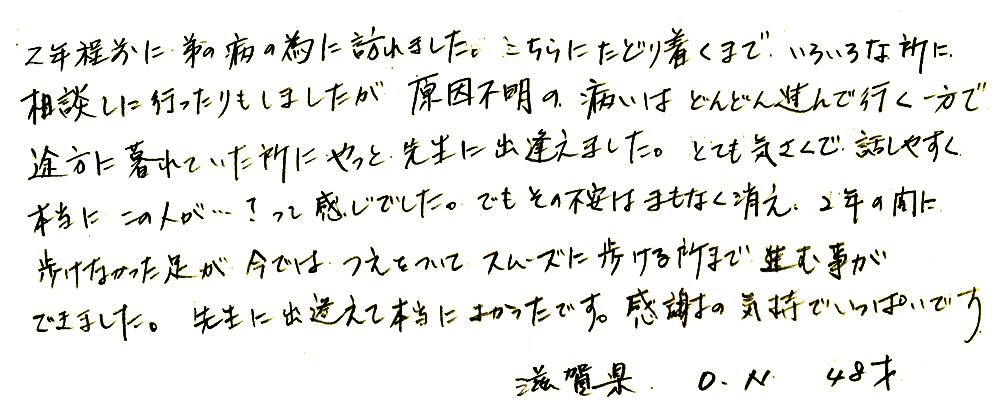 2年程前に弟の病の為に訪れました。こちらにたどり着くまで、いろいろな所に
相談しに行ったりもしましたが 原因不明の 病いは どんどん進んで行く一方で
途方に暮れていた所に やっと 先生に出逢えました。とても気さくで 話しやすく
本当に この人が…?って感じでした。でも その不安は まもなく消え、2年の間に
歩けなかった足が 今では つえをついて スムーズに歩ける所まで 進む事が
できました。 先生に出逢えて本当によかったです。感謝の気持でいっぱいです
滋賀県 O.N 48才